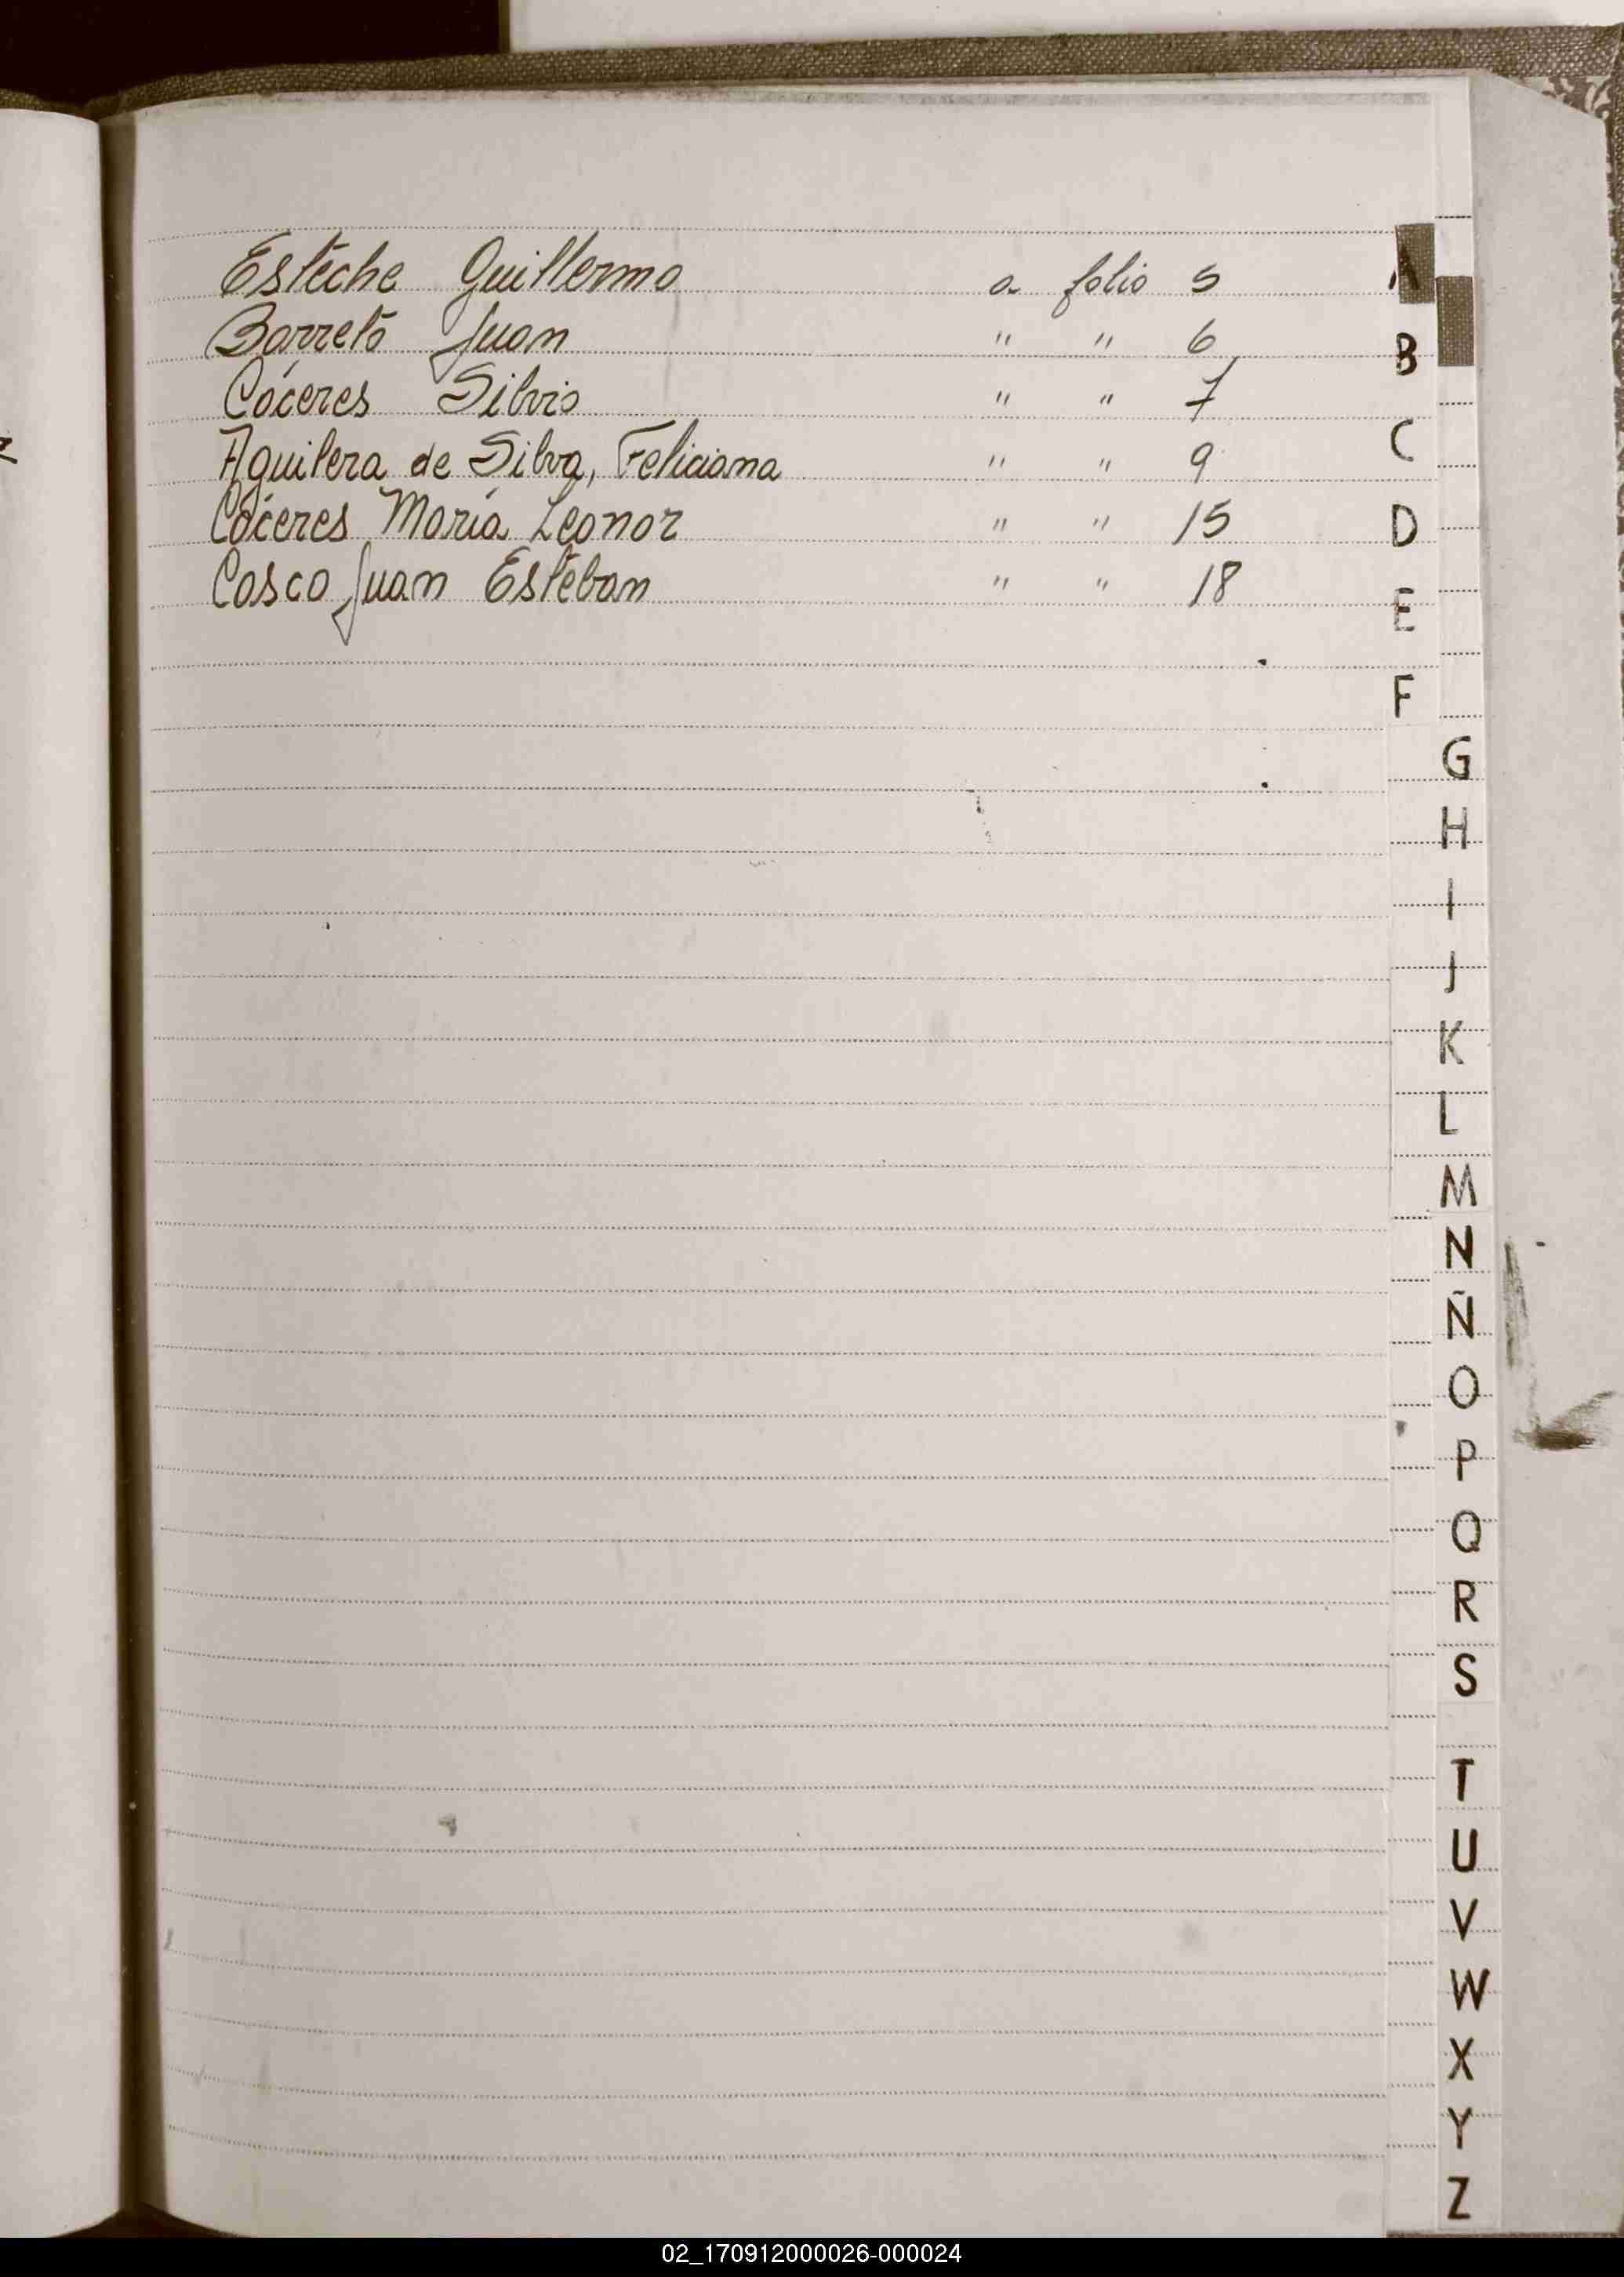 Esteche Guillermo a folio 5
Barreto Juan " " 6
Cáceres Silvio " " 7
Aguilera de Silva, Feliciana " " 9
Cáceres María Leonor " " 15
Cosco Juan Esteban " " 18
A
B
C
D
E
F
G
H
I
J
K
L
M
N
Ñ
O
P
Q
R
S
T
U
V
W
X
Y
Z
02_170912000026-000024